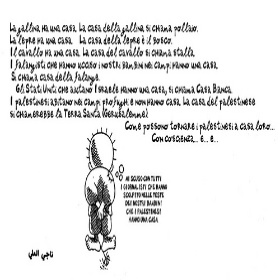 La gallina ha una casa. La casa della gallina si chiama pollaio.
La lepre ha una casa. La casa della lepre è il bosco.
Il cavallo ha una casa. La casa del cavallo si chiama stalla.
I falangisti che hanno ucciso i nostri bambini nei campi hanno una casa.
Si chiama casa della falange.
Gli Stati Uniti che aiutano Israele hanno una casa, si chiama Casa Bianca.
I palestinesi abitano nei campi profughi e non hanno casa. La casa del palestinese
si chiamerebbe la Terra Santa (Gerusalemme).
Come possono tornare i palestinesi a casa loro...
Con coscienza... e... e...
Mi scuso con tutti
i giornalisti che hanno
scolpito nelle teste
dei nostri bambini
che i palestinesi
hanno una casa
ناجي العلي